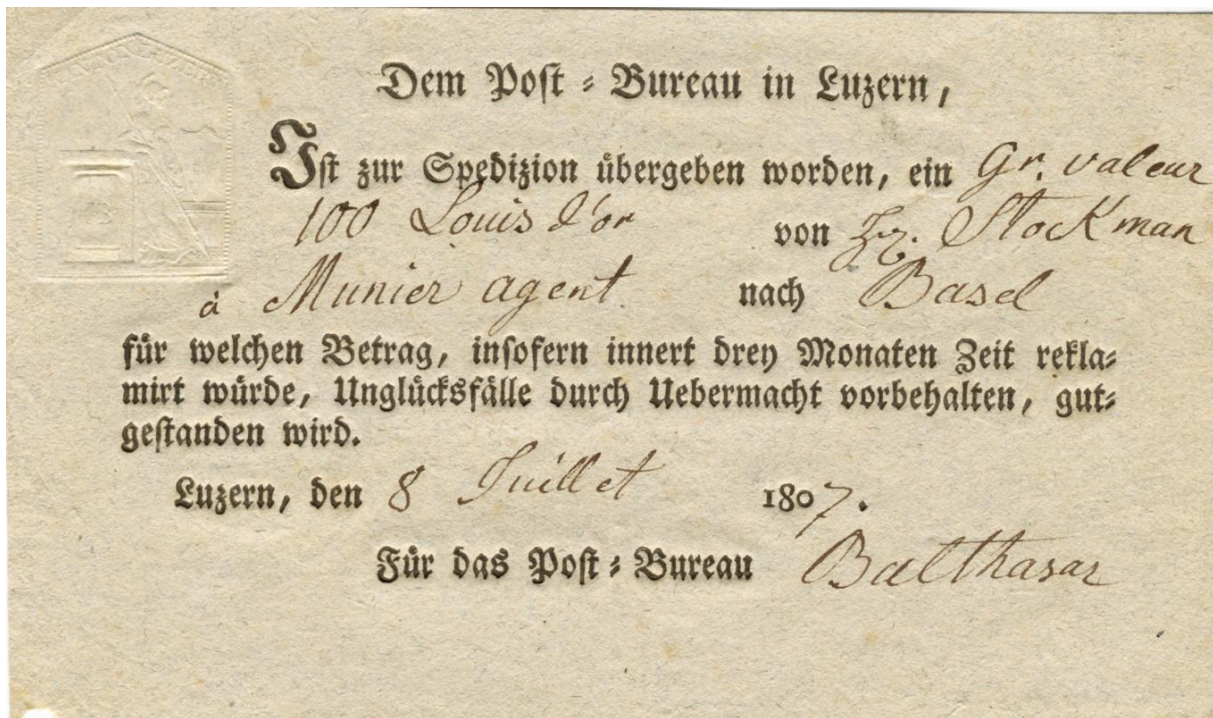 Dem Post-Bureau in Luzern,
Ist zur Spedizion übergeben worden, ein Gr. valeur
100 Louis d'or von Stockman
à Munier agent nach Basel
für welchen Betrag, insofern innert drey Monaten Zeit rekla-
mirt würde, Unglücksfälle durch Uebermacht vorbehalten, gut-
gestanden wird.
Luzern, den 8 Juillet 1807.
Für das Post-Bureau Balthasar